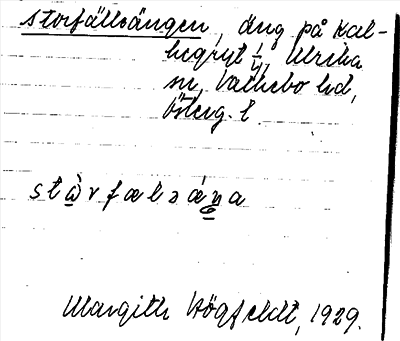 Storfällsängen, äng på Käl-
hegryt 1/4, Ulrika
sn, Valkebo hd,
Österg. l.
stὼr fælsǽŋa
Margith Högfeldt, 1929.